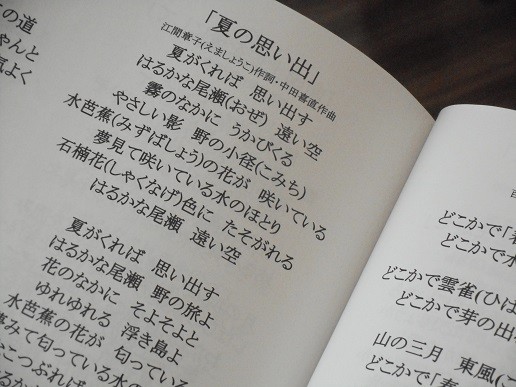 の道
やんと
気よく
「夏の思い出」
江間章子(えましょうこ)作詞・中田喜直作曲
夏がくれば 思い出す
はるかな尾瀬(おぜ) 遠い空
霧のなかに うかびくる
やさしい影 野の小径(こみち)
水芭蕉(みずばしょう)の花が 咲いている
夢見て咲いている水のほとり
石楠花(しゃくなげ)色に たそがれる
はるかな尾瀬 遠い空
夏がくれば 思い出す
はるかな尾瀬 野の旅よ
花のなかに そよそよと
ゆれゆれる 浮き島よ
水芭蕉の花が 匂っている
夢みて匂っている水の
なこつぶれば
はるかな尾
どこかで「春
どこかで水
どこかで雲雀(ひば
どこかで芽の出
山の三月 東風(こ
どこかで「春